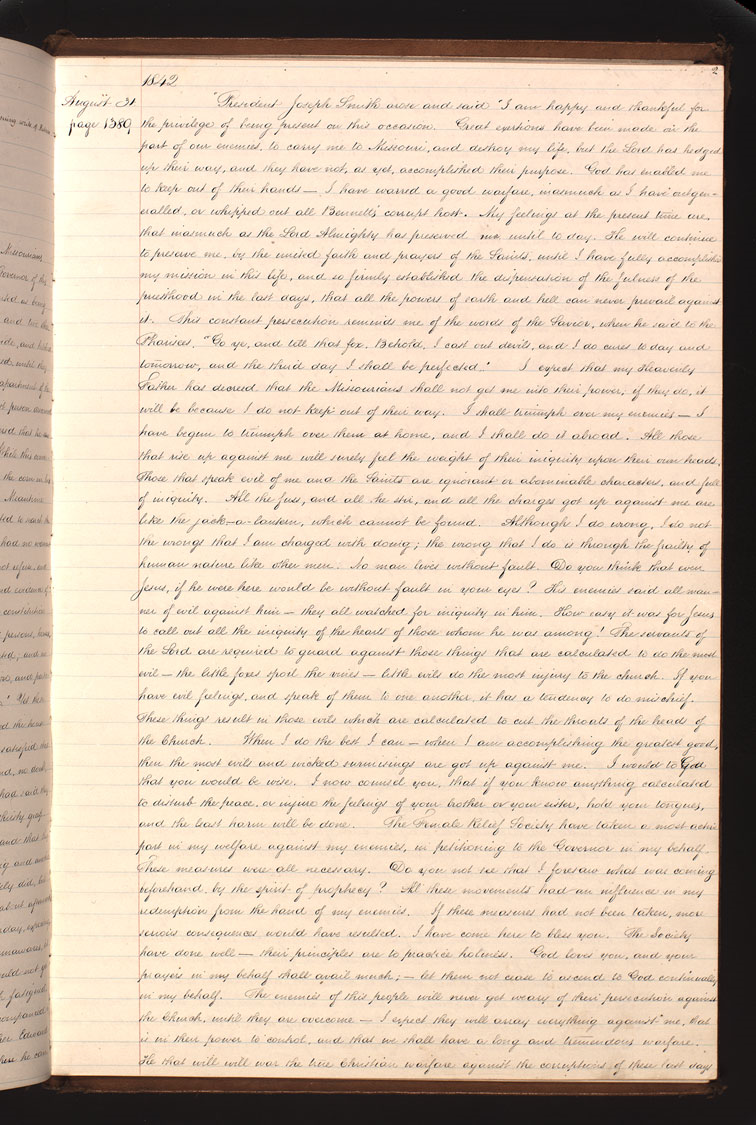 2
1842
August 31
page 1389
"President Joseph Smith arose and said "I am happy and thankful for
the privilege of being present on this occasion. Great exertions have been made on the
part of our enemies, to carry me to Missouri, and destroy my life, but the Lord has hedged
up their way, and they have not, as yet, accomplished their purpose. God has enabled me
to keep out of their hands — I have warred a good warfare, inasmuch as I have outgen-
eralled, or whipped out all Bennett's corrupt host. My feelings at the present time are,
that inasmuch as the Lord Almighty has preserved me until to day. He will continue
to preserve me, by the united faith and prayers of the Saints, until I have fully accomplished
my mission in this life, and so firmly established the dispensation of the fulness of the
priesthood in the last days, that all the powers of earth and hell can never prevail against
it. This constant persecution reminds me of the words of the Savior, when he said to the
Pharisees, "Go ye, and tell that fox, Behold, I cast out devils, and I do cures to day and
tomorrow, and the third day I shall be perfected." I expect that my Heavenly
Father has decreed that the Missourians shall not get me into their power, if they do, it
will be because I do not keep out of their way. I shall triumph over my enemies — I
have begun to triumph over them at home, and I shall do it abroad. All those
that rise up against me will surely feel the weight of their iniquity upon their own heads.
Those that speak evil of me and the Saints are ignorant or abominable characters, and full
of iniquity. All the fuss, and all the stir, and all the charges got up against me are
like the jack-a-lantern, which cannot be found. Although I do wrong, I do not
the wrongs that I am charged with doing; the wrong that I do is through the frailty of
human nature like other men. No man lives without fault. Do you think that even
Jesus, if he were here would be without fault in your eyes? His enemies said all man-
ner of evil against him — they all watched for iniquity in him. How easy it was for Jesus
to call out all the iniquity of the hearts of those whom he was among! The servants of
the Lord are required to guard against those things that are calculated to do the most
evil — the little foxes spoil the vines — little evils do the most injury to the church. If you
have evil feelings, and speak of them to one another, it has a tendency to do mischief.
These things result in those evils which are calculated to cut the throats of the heads of
the Church. When I do the best I can — when I am accomplishing the greatest good,
then the most evils and wicked surmisings are got up against me. I would to God
that you would be wise. I now counsel you, that if you know anything calculated
to disturb the peace, or injure the feelings of your brother or your sister, hold your tongues,
and the least harm will be done. The Female Relief Society have taken a most active
part in my welfare against my enemies, in petitioning to the Governor in my behalf.
These measures were all necessary. Do you not see that I foresaw what was coming
beforehand, by the spirit of prophecy? All these movements had an influence in my
redemption from the hand of my enemies. If these measures had not been taken, more
serious consequences would have resulted. I have come here to bless you. The Society
have done well — their principles are to practice holiness. God loves you, and your
prayers in my behalf shall avail much; — let them not cease to ascend to God continually
in my behalf. The enemies of this people will never get weary of their persecution against
the Church, until they are overcome — I expect they will array everything against me, that
is in their power to control, and that we shall have a long and tremendous warfare.
He that will will war the true Christian warfare against the corruptions of these last days